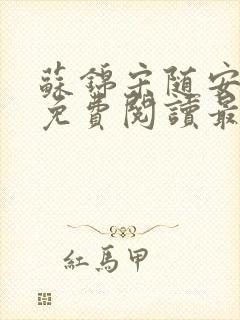 蘇錦宋随安
免費閱讀最
紅馬甲